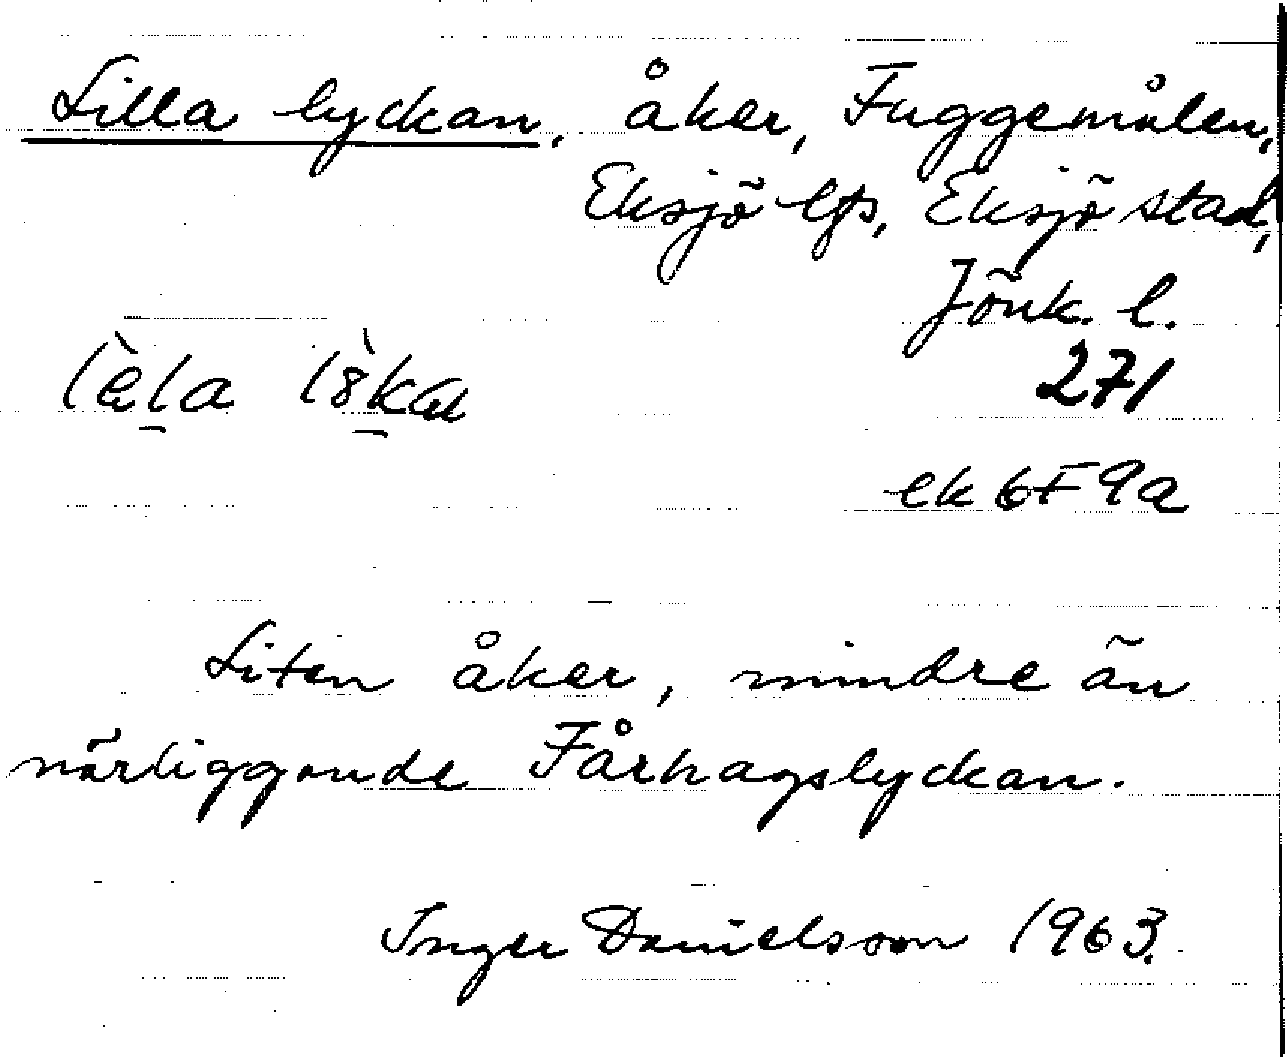 Lilla lyckan, åker, Fuggemålen,
Eksjö lfs, Eksjö stad,
Jönk. l.
271
ek 6F9a
Liten åker, mindre än
närliggande Fårhagslyckan.
Inger Danielsson 1963.